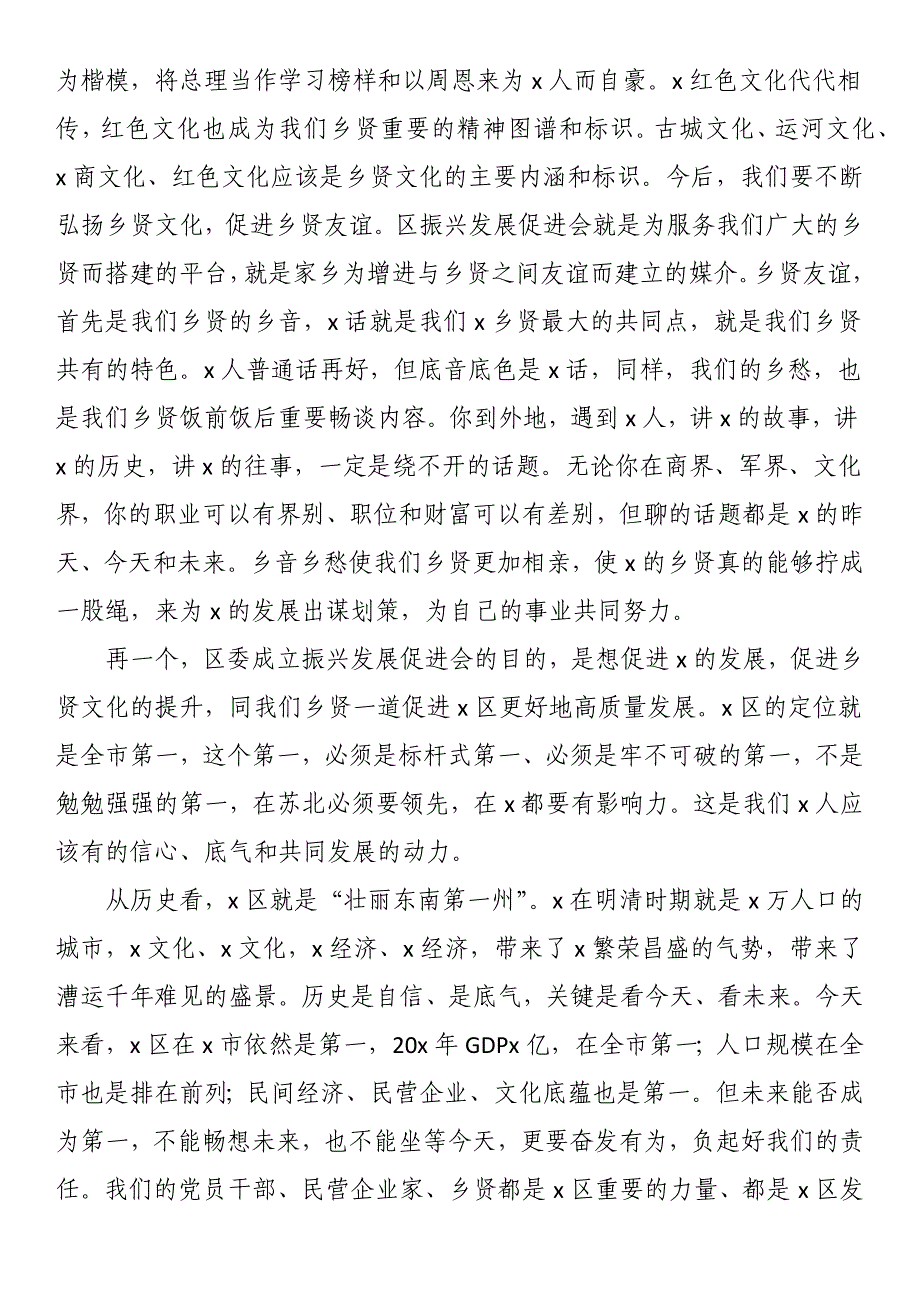 为楷模，将总理当作学习榜样和以周恩来为 x 人而自豪。x 红色文化代代相
传，红色文化也成为我们乡贤重要的精神图谱和标识。古城文化、运河文化、
x 商文化、红色文化应该是乡贤文化的主要内涵和标识。今后，我们要不断
弘扬乡贤文化，促进乡贤友谊。区振兴发展促进会就是为服务我们广大的乡
贤而搭建的平台，就是家乡为增进与乡贤之间友谊而建立的媒介。乡贤友谊，
首先是我们乡贤的乡音，x 话就是我们 x 乡贤最大的共同点，就是我们乡贤
共有的特色。x 人普通话再好，但底音底色是 x 话，同样，我们的乡愁，也
是我们乡贤饭前饭后重要畅谈内容。你到外地，遇到 x 人，讲 x 的故事，讲
x 的历史，讲 x 的往事，一定是绕不开的话题。无论你在商界、军界、文化
界，你的职业可以有界别、职位和财富可以有差别，但聊的话题都是 x 的昨
天、今天和未来。乡音乡愁使我们乡贤更加相亲，使 x 的乡贤真的能够拧成
一股绳，来为 x 的发展出谋划策，为自己的事业共同努力。
再一个，区委成立振兴发展促进会的目的，是想促进 x 的发展，促进乡
贤文化的提升，同我们乡贤一道促进 x 区更好地高质量发展。x 区的定位就
是全市第一，这个第一，必须是标杆式第一、必须是牢不可破的第一，不是
勉勉强强的第一，在苏北必须要领先，在 x 都要有影响力。这是我们 x 人应
该有的信心、底气和共同发展的动力。
从历史看，x 区就是“壮丽东南第一州”。x 在明清时期就是 x 万人口的
城市，x 文化、x 文化，x 经济、x 经济，带来了 x 繁荣昌盛的气势，带来了
漕运千年难见的盛景。历史是自信、是底气，关键是看今天、看未来。今天
来看，x 区在 x 市依然是第一，20x 年 GDPx 亿，在全市第一；人口规模在全
市也是排在前列；民间经济、民营企业、文化底蕴也是第一。但未来能否成
为第一，不能畅想未来，也不能坐等今天，更要奋发有为，负起好我们的责
任。我们的党员干部、民营企业家、乡贤都是 x 区重要的力量、都是 x 区发